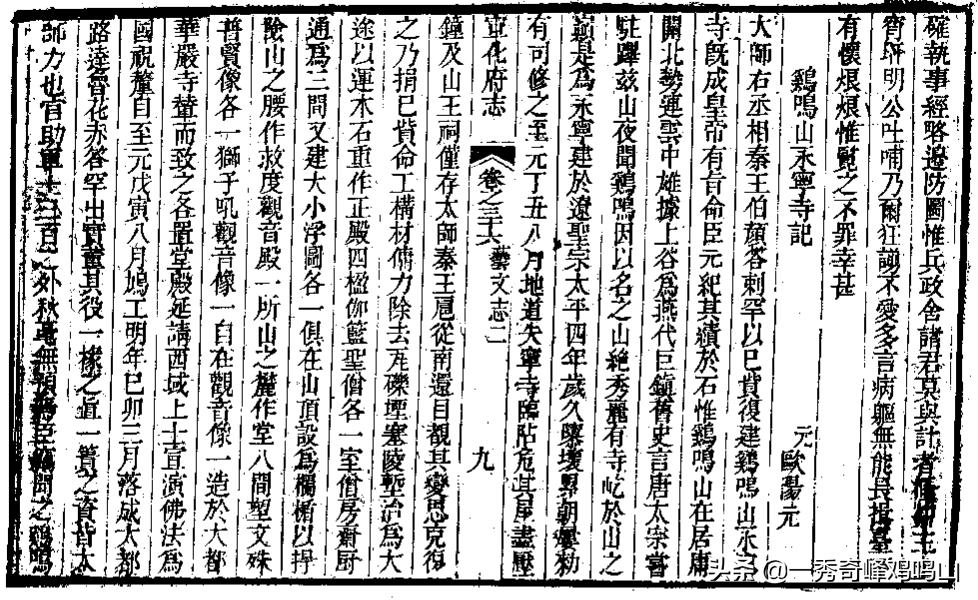 確執事經略邊防圖惟兵政舍諸君莫與計者
齊 明公吐哺乃爾狂謬不愛多言病軀無能長揖臺
有懷烺烺惟覽之不罪幸甚
鷄鳴山永寧寺記 元 歐陽元
大師右丞相秦王伯顏荅剌罕以已貲復建鷄鳴山永
寺旣成皇帝有旨命臣元紀其績於石惟鷄鳴山在居庸
關北勢連雲中雄據上谷爲燕代巨鎭舊史言唐太宗嘗
駐蹕茲山夜聞鷄鳴因以名之山絶秀麗有寺屹於山之
巔是爲永寧建於遼聖宗太平四年歲久隳壞累朝屢勑
有司修之至元丁丑八月地道失寧寺臨阽危其屋盡壓
宣化府志 卷之三十六 藝文志二 九
鐘及山王祠僅存太師秦王扈從南還目覩其變思克復
之乃捐己貲命工構材傭力除去瓦礫堙塞陵塹治爲大
途以運木石重作正殿四楹伽藍聖僧各一室僧房齋厨
通爲三間又建大小浮圖各一俱在山頂設爲欄楯以捍
險山之腰作救度觀音殿一所山之麓作堂八間塑文殊
普賢像各一獅子吼觀音像一自在觀音像一造於大都
華嚴寺輦而致之各置堂殿延請西域上士宣演佛法爲
國祝釐自至元戊寅八月鳩工明年己卯三月落成大都
路達魯花赤答罕出實董其役一椽之直一簣之資皆太
師力也官助軍士三百 外秋毫無預 臣 聞之鷄鳴
头条@一秀奇峰鸡鸣山